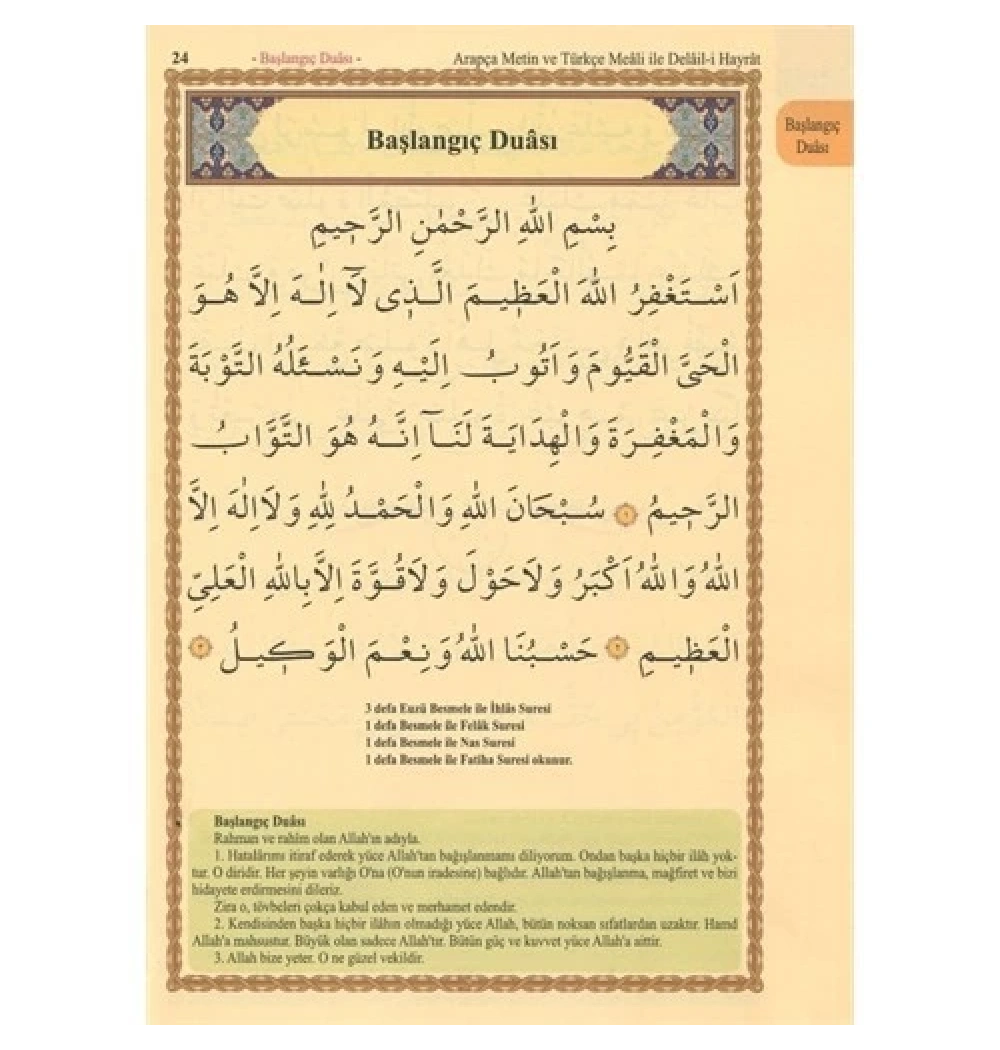 24 - Başlangıç Duâsı - Arapça Metin ve Türkçe Meâli ile Delâil-i Hayrât
Başlangıç
Duâsı
Başlangıç Duâsı
بِسْمِ اللهِ الرَّحْمٰنِ الرَّحِيمِ
اَسْتَغْفِرُ اللهَ الْعَظِيمَ الَّذِى لَآ اِلٰهَ اِلَّا هُوَ
الْحَىَّ الْقَيُّومَ وَاَتُوبُ اِلَيْهِ وَنَسْئَلُهُ التَّوْبَةَ
وَالْمَغْفِرَةَ وَالْهِدَايَةَ لَنَآ اِنَّهُ هُوَ التَّوَّابُ
الرَّحِيمُ ١ سُبْحَانَ اللهِ وَالْحَمْدُ لِلهِ وَلَا اِلٰهَ اِلَّا
اللهُ وَاللهُ اَكْبَرُ وَلَا حَوْلَ وَلَا قُوَّةَ اِلَّا بِاللهِ الْعَلِىِّ
الْعَظِيمِ ٢ حَسْبُنَا اللهُ وَنِعْمَ الْوَكِيلُ ٣
3 defa Euzü Besmele ile İhlâs Suresi
1 defa Besmele ile Felâk Suresi
1 defa Besmele ile Nas Suresi
1 defa Besmele ile Fatiha Suresi okunur.
Başlangıç Duâsı
Rahman ve rahîm olan Allah'ın adıyla.
1. Hatalârımı itiraf ederek yüce Allah'tan bağışlanmamı diliyorum. Ondan başka hiçbir ilâh yok-
tur. O diridir. Her şeyin varlığı O'na (O'nun iradesine) bağlıdır. Allah'tan bağışlanma, mağfiret ve bizi
hidayete erdirmesini dileriz.
Zira o, tövbeleri çokça kabul eden ve merhamet edendir.
2. Kendisinden başka hiçbir ilâhın olmadığı yüce Allah, bütün noksan sıfatlardan uzaktır. Hamd
Allah'a mahsustur. Büyük olan sadece Allah'tır. Bütün güç ve kuvvet yüce Allah'a aittir.
3. Allah bize yeter. O ne güzel vekildir.